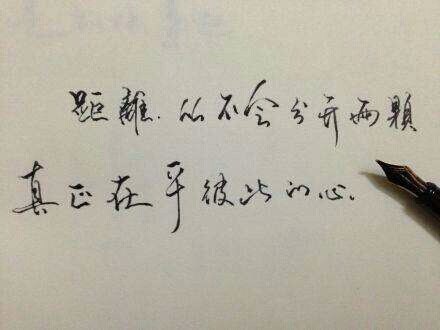 距離.从不会分开两顆
真正在乎彼此的心.